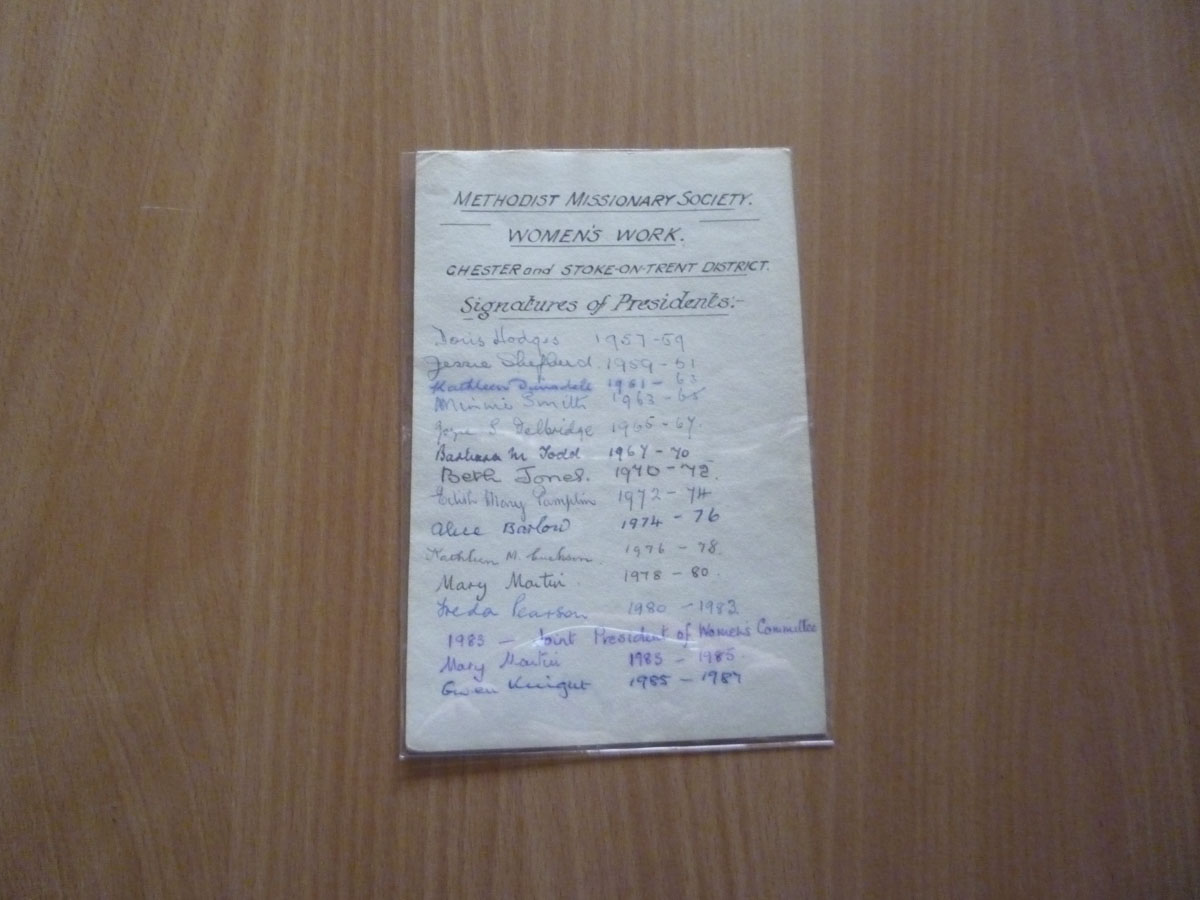 METHODIST MISSIONARY SOCIETY.
WOMEN'S WORK.
CHESTER and STOKE-ON-TRENT DISTRICT.
Signatures of Presidents:-
Doris Hodges 1957-59
Jessie Shepherd 1959-61
Kathleen 1961-63
Minnie Smith 1963-65
Joyce S Delbridge 1965-67.
Barbara M Todd 1967-70
Beth Jones. 1970-72.
Edith Mary Pamplin 1972-74
Alice Barlow 1974-76
Kathleen M. 1976-78.
Mary Martin. 1978-80.
Freda Pearson 1980-1983
1983 - Joint President of Women's Committee
Mary Martin 1983-1985.
Gwen Knight 1985-1987